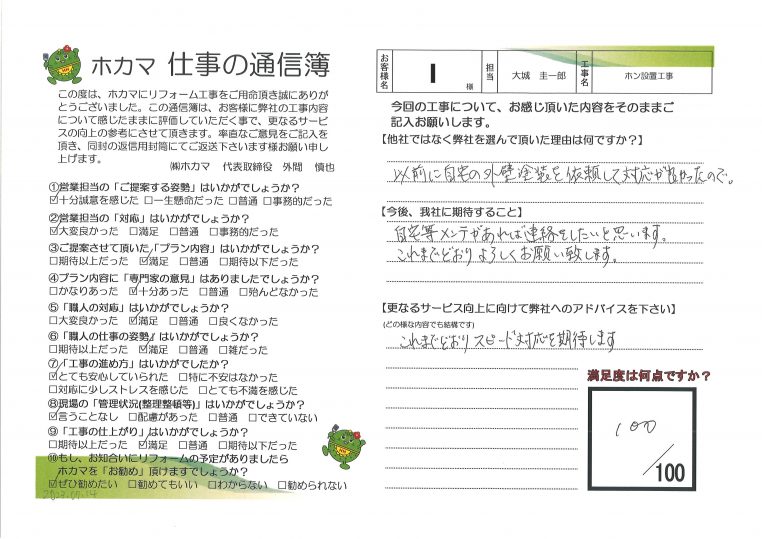 ホカマ 仕事の通信簿
この度は、ホカマにリフォーム工事をご用命頂き誠にありが
とうございました。この通信簿は、お客様に弊社の工事内容
について感じたままに評価していただく事で、更なるサービ
スの向上の参考にさせて頂きます。率直なご意見をご記入を
頂き、同封の返信用封筒にてご返送下さいます様お願い申し
上げます。
㈱ホカマ 代表取締役 外間 慎也
①営業担当の「ご提案する姿勢」はいかがでしょうか?
☑十分誠意を感じた □一生懸命だった □普通 □事務的だった
②営業担当の「対応」はいかがでしょうか?
☑大変良かった □満足 □普通 □事務的だった
③ご提案させて頂いた「プラン内容」はいかがでしょうか?
□期待以上だった ☑満足 □普通 □期待以下だった
④プラン内容に「専門家の意見」はありましたでしょうか?
□かなりあった ☑十分あった □普通 □殆んどなかった
⑤「職人の対応」はいかがでしょうか?
□大変良かった ☑満足 □普通 □良くなかった
⑥「職人の仕事の姿勢」はいかがでしょうか?
□期待以上だった ☑満足 □普通 □雑だった
⑦「工事の進め方」はいかがでしたか?
☑とても安心していられた □特に不安はなかった
□対応に少しストレスを感じた □とても不満を感じた
⑧現場の「管理状況(整理整頓等)」はいかがでしょうか?
☑言うことなし □配慮があった □普通 □できていない
⑨「工事の仕上がり」はいかがでしょうか?
□期待以上だった ☑満足 □普通 □期待以下だった
⑩もし、お知合いにリフォームの予定がありましたら
ホカマを「お勧め」頂けますでしょうか?
☑ぜひ勧めたい □勧めてもいい □わからない □勧められない
2023.07.14
お客様名 I 様 担当 大城 圭一郎 工事名 ホン設置工事
今回の工事について、お感じ頂いた内容をそのままご
記入お願いします。
【他社ではなく弊社を選んで頂いた理由は何ですか?】
以前に自宅の外壁塗装を依頼して対応が良かったので。
【今後、我社に期待すること】
自宅等メンテがあれば連絡をしたいと思います。
これまでどおりよろしくお願い致します。
【更なるサービス向上に向けて弊社へのアドバイスを下さい】
(どの様な内容でも結構です)
これまでどおりスピード対応を期待します
満足度は何点ですか?
100
/100